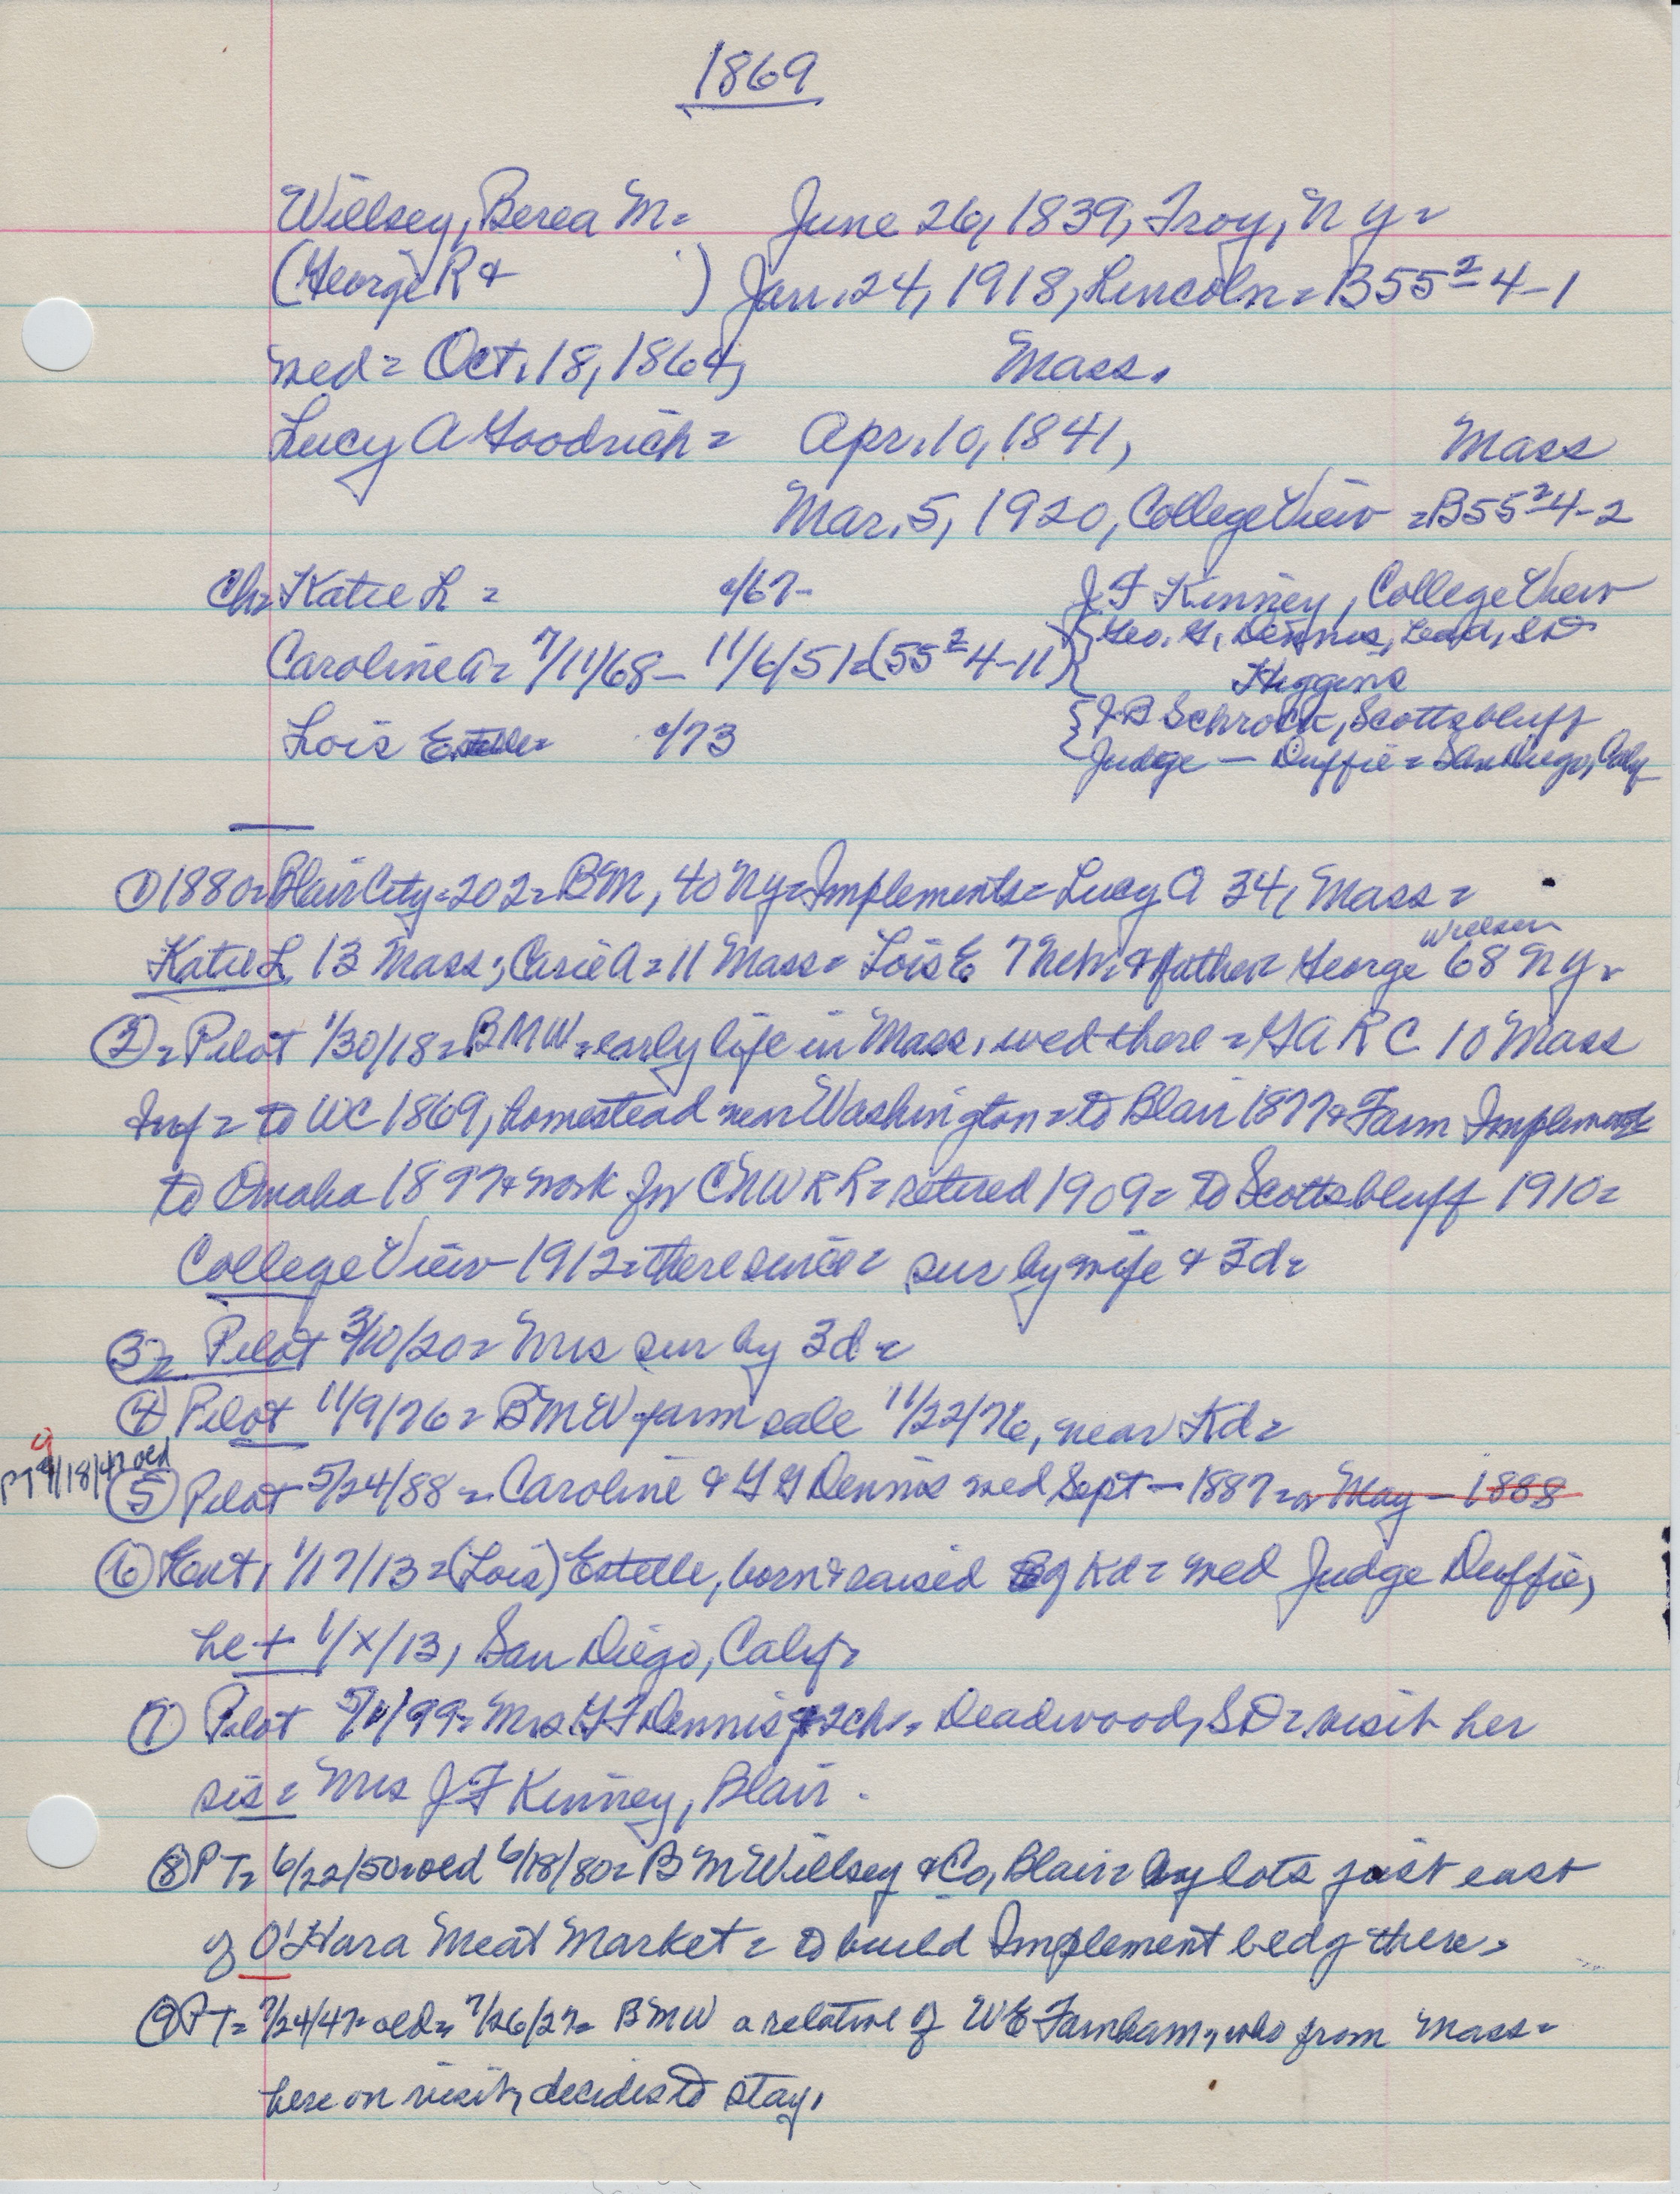 1869
Willsey, Berea M = June 26, 1839, Troy, N Y =
(George R & ) Jan. 24, 1918, Lincoln = B55² 4-1
wed = Oct. 18, 1864, Mass.
Lucy A Goodrich = Apr. 10, 1841, Mass
Mar. 5, 1920, College View = B55² 4-2
Ch = Katie L = c/67- J F Kinney, College View
{ Geo. G. Dennis, Lead, SD
Caroline A = 7/11/68 - 11/6/51 = (55² 4-11)
Higgins
{ J B Schrock, Scottsbluff
Lois Estelle = c/73
Judge — Duffie = San Diego, Calif
① 1880 = Blair City = 202 = BM, 40 NY = Implements = Lucy A 34, Mass =
Willsey
Katie L 13 Mass; Casie A = 11 Mass = Lois E 7 Neb; & father George 68 NY =
② = Pilot 1/30/18 = BMW = early life in Mass, wed there = GAR C 10 Mass
Inf = to WC 1869, homestead near Washington = to Blair 1877 & Farm Implements
to Omaha 1897 & work for CNW RR = retired 1909 = to Scottsbluff 1910 =
College View 1912 = there since = sur by wife & 3d =
③ = Pilot 3/10/20 = Mrs sur by 3d =
④ Pilot 11/9/76 = BMW farm sale 11/22/76, near Kd =
9
PT 9/18/47 old
⑤ Pilot 5/24/88 = Caroline & G G Dennis wed Sept — 1887 = or May — 1888
⑥ Ent, 1/17/13 = (Lois) Estelle, born & raised Kd = wed Judge Duffie,
he + 1/x/13, San Diego, Calif =
⑦ Pilot 99 = Mrs G F Dennis & 2ch =, Deadwood, SD = visit her
sis = Mrs J F Kinney, Blair.
⑧ PT = 6/22/50 = old 6/18/80 = B M Willsey & Co, Blair = buy lots just east
of O'Hara Meat Market = to build Implement bldg there =
⑨ PT = 7/24/47 = old = 7/26/27 = BMW a relative of W E Farnham, who from Mass =
here on visit, decides to stay.